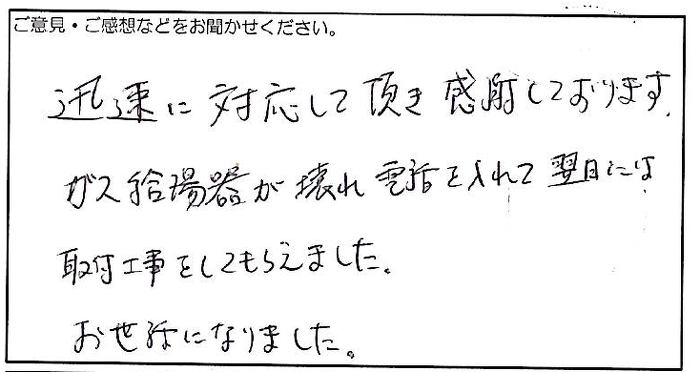 ご意見・ご感想などをお聞かせください。
迅速に対応して頂き感謝しております.
ガス給湯器が壊れ電話を入れて翌日には
取付工事をしてもらえました。
お世話になりました。